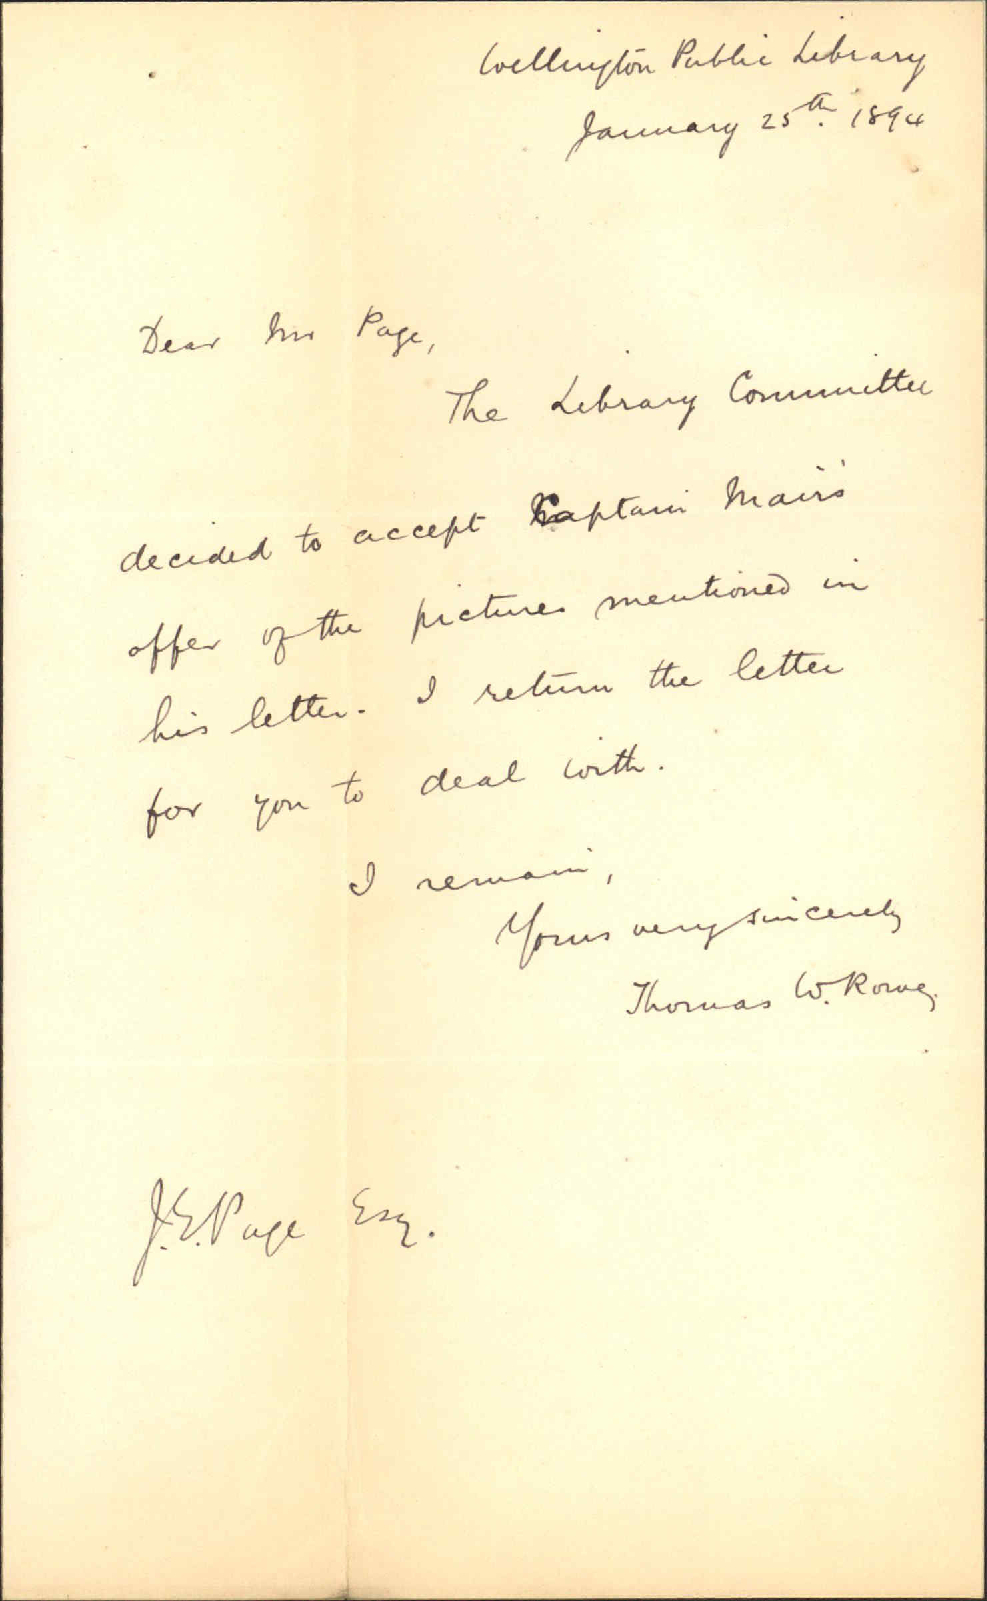 Wellington Public Library
January 25th. 1894
Dear Mr Page,
The Library Committee
decided to accept Captain Mair's
offer of the pictures mentioned in
his letter. I return the letter
for you to deal with.
I remain,
Yours very sincerely
Thomas W. Rowe.
J.E. Page Esq.